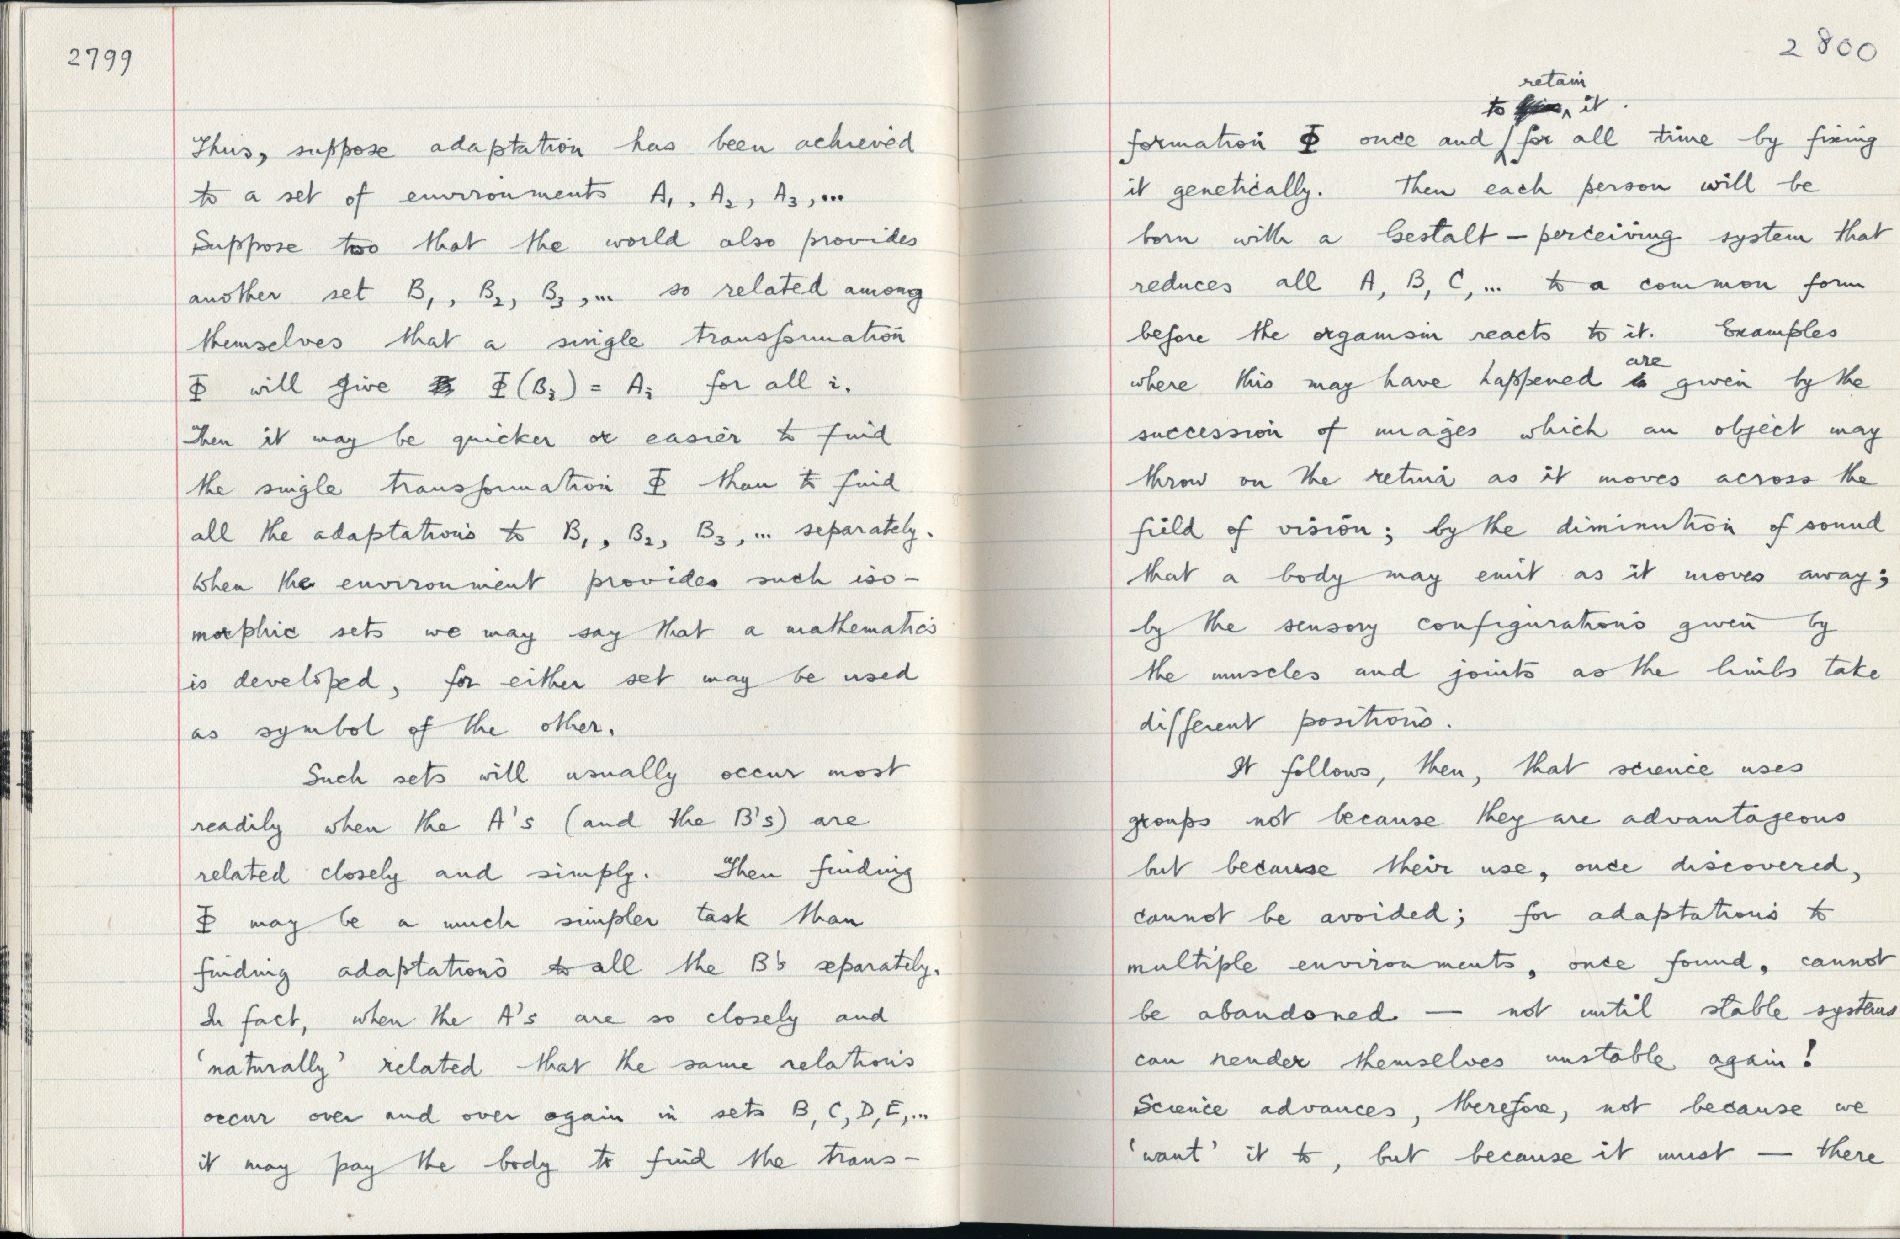 2799
Thus, suppose adaptation has been achieved
to a set of environments A₁, A₂, A₃,...
Suppose too that the world also provides
another set B₁, B₂, B₃,... so related among
themselves that a single transformation
Φ will give Φ(Bᵢ) = Aᵢ for all i.
Then it may be quicker or easier to find
the single transformation Φ than to find
all the adaptations to B₁, B₂, B₃,... separately.
When the environment provides such iso-
morphic sets we may say that a mathematics
is developed, for either set may be used
as symbol of the other.
Such sets will usually occur most
readily when the A's (and the B's) are
related closely and simply. Then finding
Φ may be a much simpler task than
finding adaptations to all the B's separately.
In fact, when the A's are so closely and
'naturally' related that the same relations
occur over and over again in sets B, C, D, E,...
it may pay the body to find the trans-
2800
retain
to it.
formation Φ once and for all time by fixing
it genetically. Then each person will be
born with a Gestalt-perceiving system that
reduces all A, B, C,... to a common form
before the organism reacts to it. Examples
are
where this may have happened given by the
succession of images which an object may
throw on the retina as it moves across the
field of vision; by the diminution of sound
that a body may emit as it moves away;
by the sensory configurations given by
the muscles and joints as the limbs take
different positions.
It follows, then, that science uses
groups not because they are advantageous
but because their use, once discovered,
cannot be avoided; for adaptations to
multiple environments, once found, cannot
be abandoned — not until stable systems
can render themselves unstable again!
Science advances, therefore, not because we
'want' it to, but because it must — there